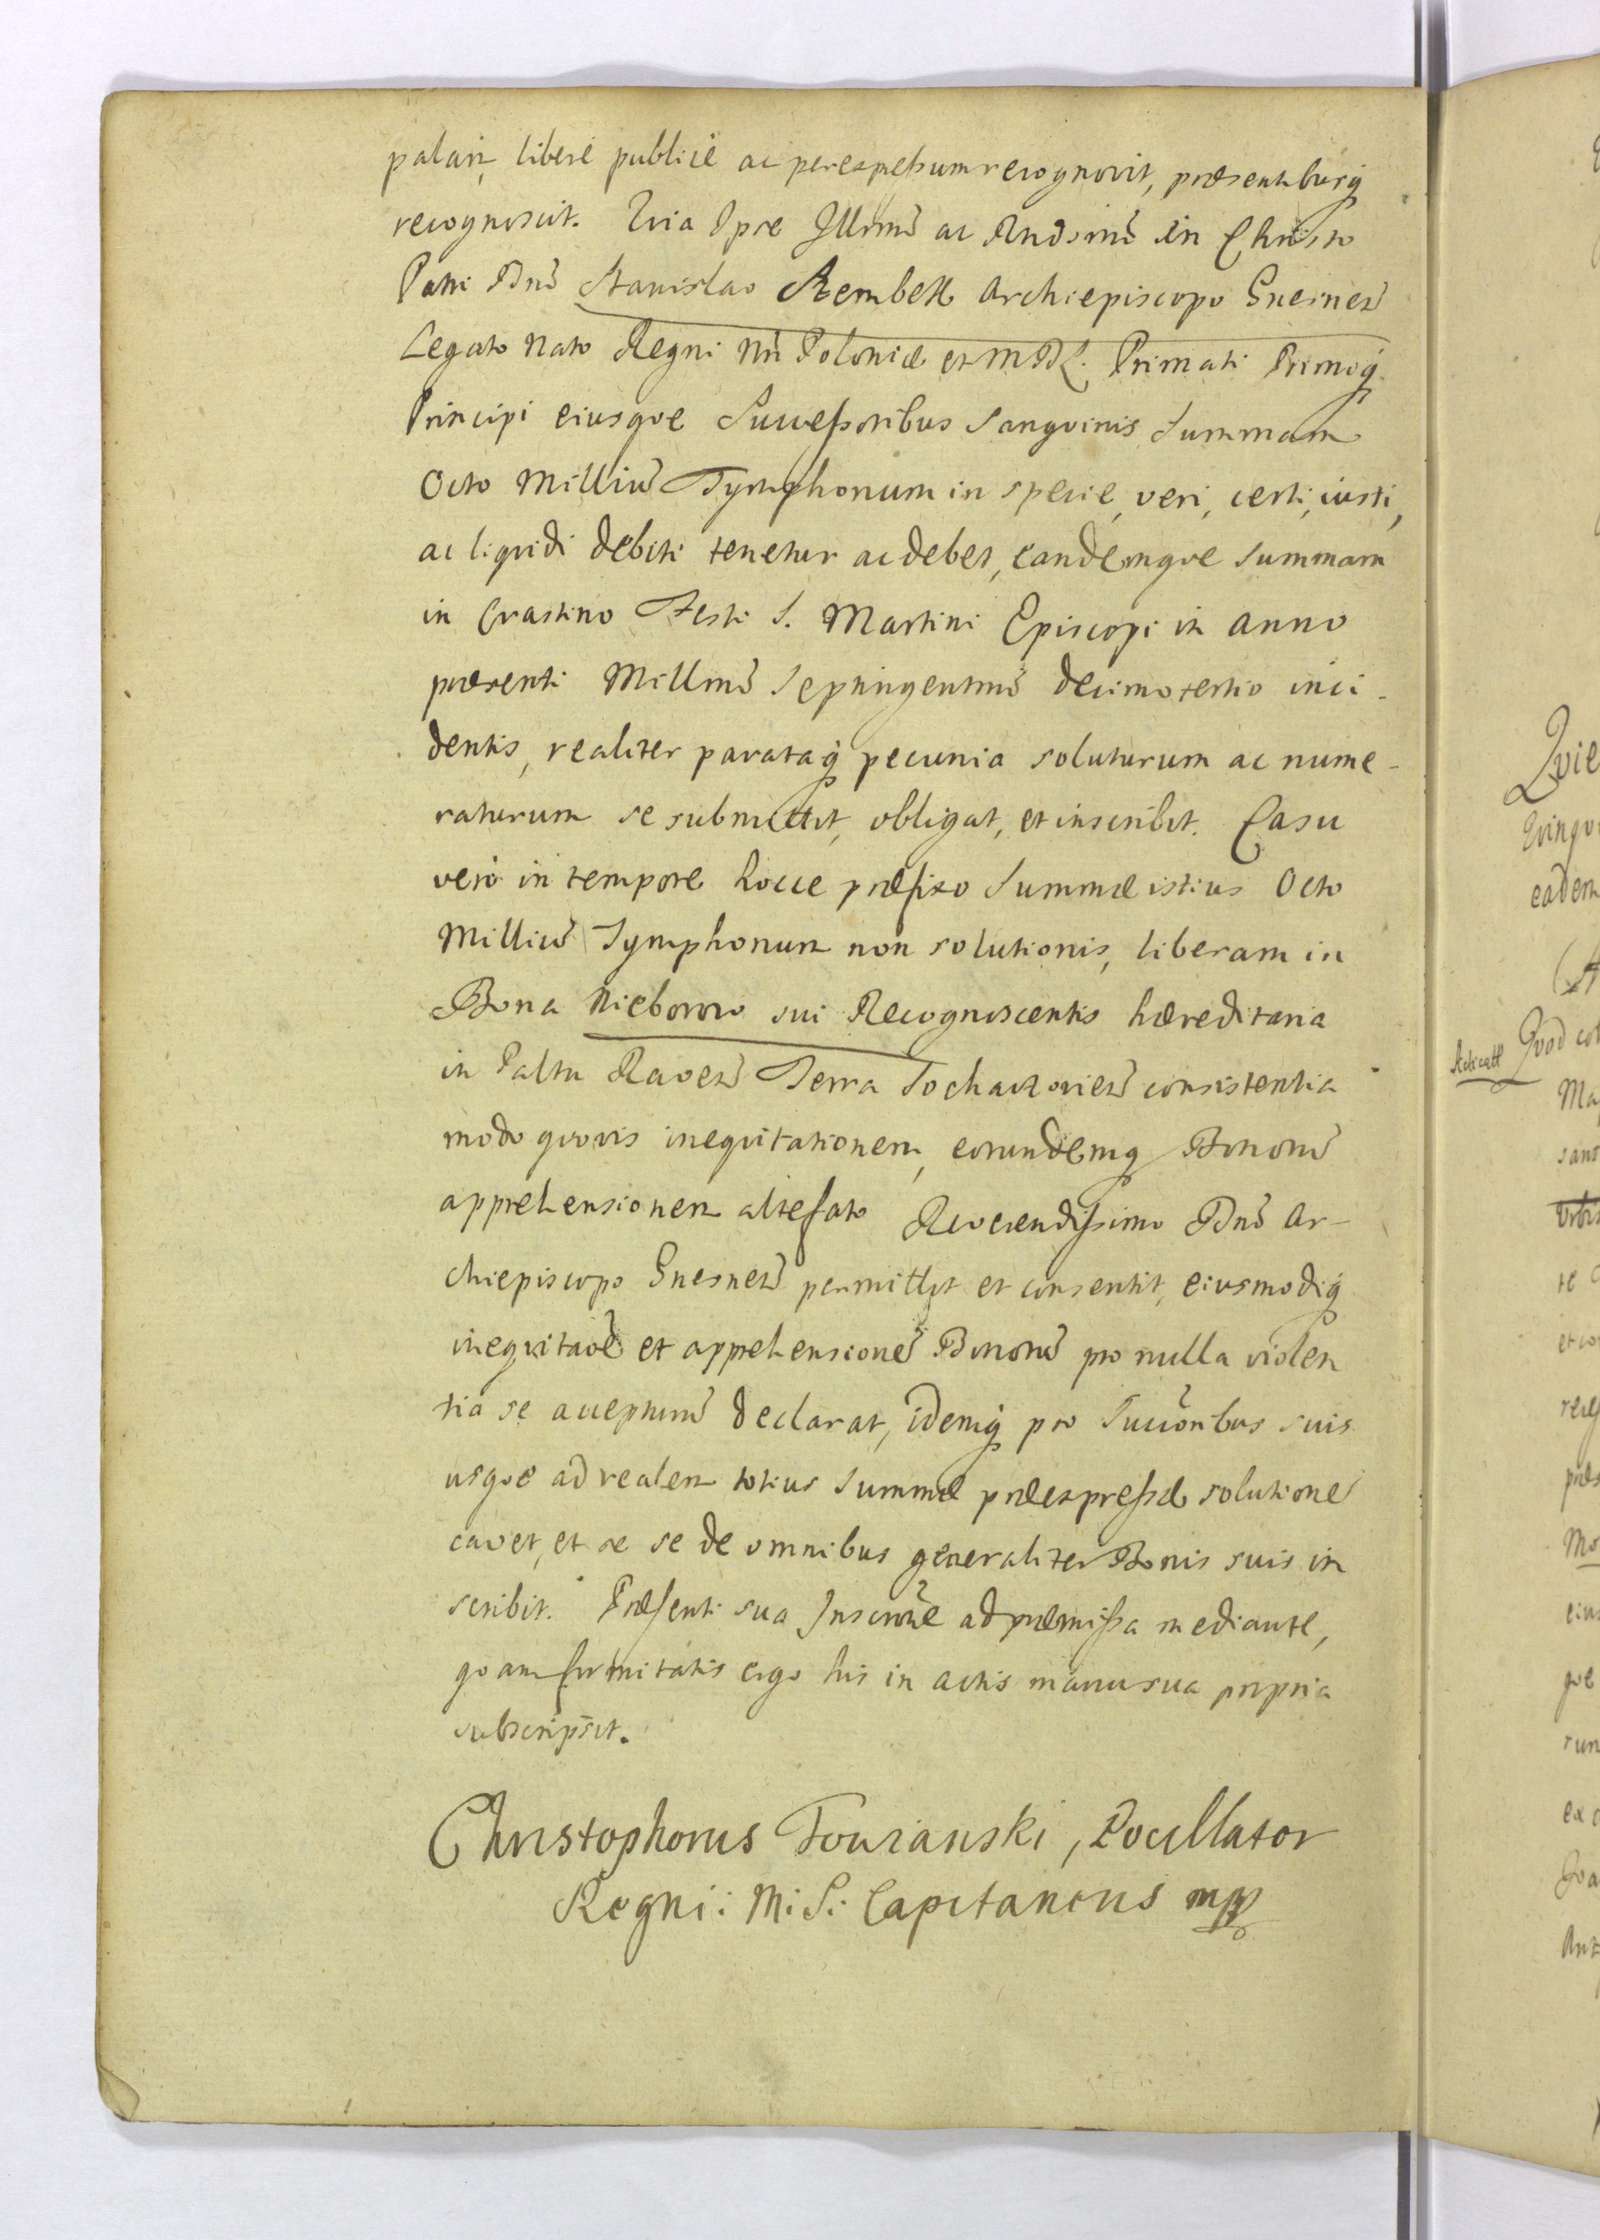 palam, libere publice ac per expressum recognovit, præsentibusq́
recognoscit. Qvia Ipse Illrmō ac Rndsmō in Christo
Patri Dnō Stanislao Szembek Archiepiscopo Gnesneñ
Legato nato Regni nri Poloniæ et M D L. Primati Primoq́
Principi eiusqve Successoribus Sangvinis Summam
Octo Milliū Tymphonum in specie, veri, certi, iusti,
ac liqvidi debiti tenetur ac debet, eandemqve Summam
in Crastino Festi S. Martini Episcopi in Anno
præsenti Millmō Septingentmō decimo tertio inci-
dentis, realiter parataq́ pecunia soluturum ac nume-
raturum se submittit, obligat, et inscribit. Casu
verò in tempore hocce præfixo Summæ istius Octo
Milliū Tymphonum non solutionis, liberam in
Bona Nieborow sui Recognoscentis hæreditaria
in Paltu Raveñ Terra Sochaczovieñ consistentia
modo qvovis ineqvitationem, eorundemq́ Bonorū
apprehensionem altefato Reverendissimo Dnō Ar-
chiepiscopo Gnesneñ permittit et consentit, eiusmodiq́
ineqvitaōe et apprehensionē Bonorū pro nulla violen
tia se accepturū declarat, idemq́ pro Succōribus suis
usqve ad realem totius Summæ præexpressæ solutionē
cavet, et se se de omnibus generaliter Bonis suis in
scribit. Præsenti sua Inscrōne ad præmissa mediante,
qvam firmitatis ergo his in Actis manu sua propria
subscripsit.
Christophorus Towianski, Pocillator
Regni: M: S: Capitaneus mpp
Qvie
eadem
Qvod
Ma
sans
te
et co
præs
Mo
eius
qve
run
ex